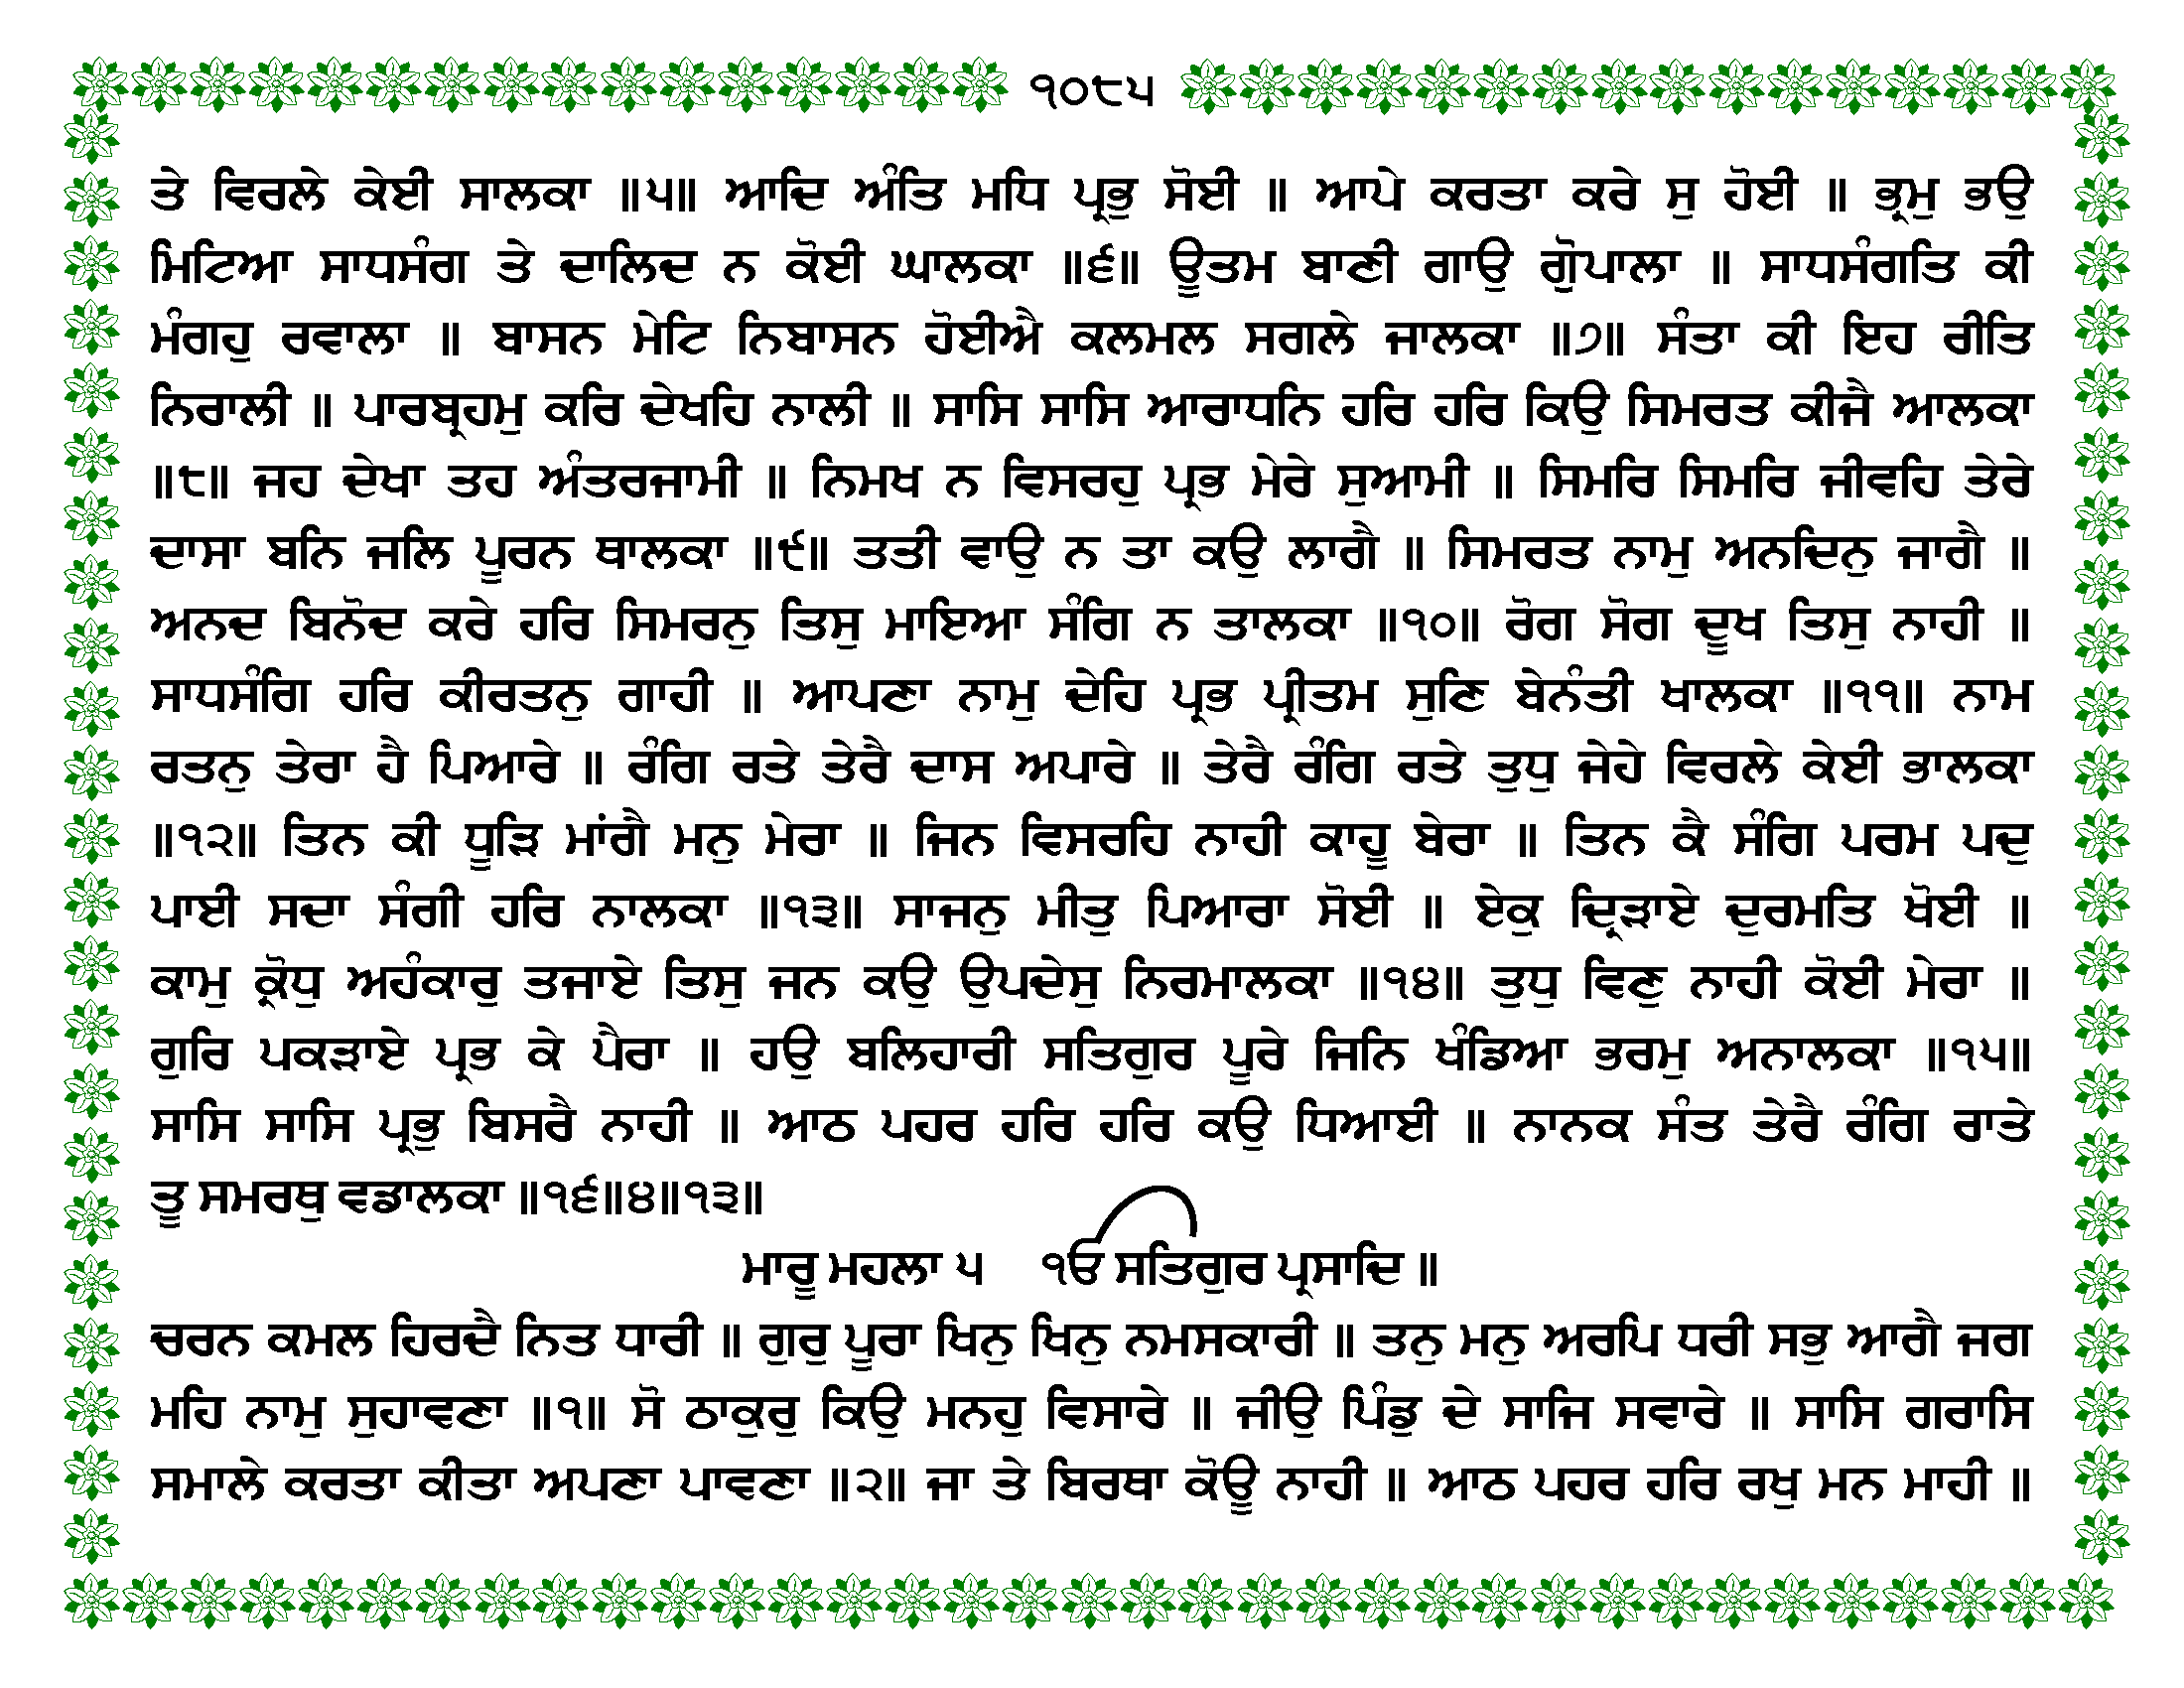 ੧੦੮੫
ਤੇ ਵਿਰਲੇ ਕੇਈ ਸਾਲਕਾ ॥੫॥ ਆਦਿ ਅੰਤਿ ਮਧਿ ਪ੍ਰਭੁ ਸੋਈ ॥ ਆਪੇ ਕਰਤਾ ਕਰੇ ਸੁ ਹੋਈ ॥ ਭ੍ਰਮੁ ਭਉ
ਮਿਟਿਆ ਸਾਧਸੰਗ ਤੇ ਦਾਲਿਦ ਨ ਕੋਈ ਘਾਲਕਾ ॥੬॥ ਊਤਮ ਬਾਣੀ ਗਾਉ ਗੋੁਪਾਲਾ ॥ ਸਾਧਸੰਗਤਿ ਕੀ
ਮੰਗਹੁ ਰਵਾਲਾ ॥ ਬਾਸਨ ਮੇਟਿ ਨਿਬਾਸਨ ਹੋਈਐ ਕਲਮਲ ਸਗਲੇ ਜਾਲਕਾ ॥੭॥ ਸੰਤਾ ਕੀ ਇਹ ਰੀਤਿ
ਨਿਰਾਲੀ ॥ ਪਾਰਬ੍ਰਹਮੁ ਕਰਿ ਦੇਖਹਿ ਨਾਲੀ ॥ ਸਾਸਿ ਸਾਸਿ ਆਰਾਧਨਿ ਹਰਿ ਹਰਿ ਕਿਉ ਸਿਮਰਤ ਕੀਜੈ ਆਲਕਾ
॥੮॥ ਜਹ ਦੇਖਾ ਤਹ ਅੰਤਰਜਾਮੀ ॥ ਨਿਮਖ ਨ ਵਿਸਰਹੁ ਪ੍ਰਭ ਮੇਰੇ ਸੁਆਮੀ ॥ ਸਿਮਰਿ ਸਿਮਰਿ ਜੀਵਹਿ ਤੇਰੇ
ਦਾਸਾ ਬਨਿ ਜਲਿ ਪੂਰਨ ਥਾਲਕਾ ॥੯॥ ਤਤੀ ਵਾਉ ਨ ਤਾ ਕਉ ਲਾਗੈ ॥ ਸਿਮਰਤ ਨਾਮੁ ਅਨਦਿਨੁ ਜਾਗੈ ॥
ਅਨਦ ਬਿਨੋਦ ਕਰੇ ਹਰਿ ਸਿਮਰਨੁ ਤਿਸੁ ਮਾਇਆ ਸੰਗਿ ਨ ਤਾਲਕਾ ॥੧੦॥ ਰੋਗ ਸੋਗ ਦੂਖ ਤਿਸੁ ਨਾਹੀ ॥
ਸਾਧਸੰਗਿ ਹਰਿ ਕੀਰਤਨੁ ਗਾਹੀ ॥ ਆਪਣਾ ਨਾਮੁ ਦੇਹਿ ਪ੍ਰਭ ਪ੍ਰੀਤਮ ਸੁਣਿ ਬੇਨੰਤੀ ਖਾਲਕਾ ॥੧੧॥ ਨਾਮ
ਰਤਨੁ ਤੇਰਾ ਹੈ ਪਿਆਰੇ ॥ ਰੰਗਿ ਰਤੇ ਤੇਰੈ ਦਾਸ ਅਪਾਰੇ ॥ ਤੇਰੈ ਰੰਗਿ ਰਤੇ ਤੁਧੁ ਜੇਹੇ ਵਿਰਲੇ ਕੇਈ ਭਾਲਕਾ
॥੧੨॥ ਤਿਨ ਕੀ ਧੂੜਿ ਮਾਂਗੈ ਮਨੁ ਮੇਰਾ ॥ ਜਿਨ ਵਿਸਰਹਿ ਨਾਹੀ ਕਾਹੂ ਬੇਰਾ ॥ ਤਿਨ ਕੈ ਸੰਗਿ ਪਰਮ ਪਦੁ
ਪਾਈ ਸਦਾ ਸੰਗੀ ਹਰਿ ਨਾਲਕਾ ॥੧੩॥ ਸਾਜਨੁ ਮੀਤੁ ਪਿਆਰਾ ਸੋਈ ॥ ਏਕੁ ਦ੍ਰਿੜਾਏ ਦੁਰਮਤਿ ਖੋਈ ॥
ਕਾਮੁ ਕ੍ਰੋਧੁ ਅਹੰਕਾਰੁ ਤਜਾਏ ਤਿਸੁ ਜਨ ਕਉ ਉਪਦੇਸੁ ਨਿਰਮਾਲਕਾ ॥੧੪॥ ਤੁਧੁ ਵਿਣੁ ਨਾਹੀ ਕੋਈ ਮੇਰਾ ॥
ਗੁਰਿ ਪਕੜਾਏ ਪ੍ਰਭ ਕੇ ਪੈਰਾ ॥ ਹਉ ਬਲਿਹਾਰੀ ਸਤਿਗੁਰ ਪੂਰੇ ਜਿਨਿ ਖੰਡਿਆ ਭਰਮੁ ਅਨਾਲਕਾ ॥੧੫॥
ਸਾਸਿ ਸਾਸਿ ਪ੍ਰਭੁ ਬਿਸਰੈ ਨਾਹੀ ॥ ਆਠ ਪਹਰ ਹਰਿ ਹਰਿ ਕਉ ਧਿਆਈ ॥ ਨਾਨਕ ਸੰਤ ਤੇਰੈ ਰੰਗਿ ਰਾਤੇ
ਤੂ ਸਮਰਥੁ ਵਡਾਲਕਾ ॥੧੬॥੪॥੧੩॥
ਮਾਰੂ ਮਹਲਾ ੫ ੴ ਸਤਿਗੁਰ ਪ੍ਰਸਾਦਿ ॥
ਚਰਨ ਕਮਲ ਹਿਰਦੈ ਨਿਤ ਧਾਰੀ ॥ ਗੁਰੁ ਪੂਰਾ ਖਿਨੁ ਖਿਨੁ ਨਮਸਕਾਰੀ ॥ ਤਨੁ ਮਨੁ ਅਰਪਿ ਧਰੀ ਸਭੁ ਆਗੈ ਜਗ
ਮਹਿ ਨਾਮੁ ਸੁਹਾਵਣਾ ॥੧॥ ਸੋ ਠਾਕੁਰੁ ਕਿਉ ਮਨਹੁ ਵਿਸਾਰੇ ॥ ਜੀਉ ਪਿੰਡੁ ਦੇ ਸਾਜਿ ਸਵਾਰੇ ॥ ਸਾਸਿ ਗਰਾਸਿ
ਸਮਾਲੇ ਕਰਤਾ ਕੀਤਾ ਅਪਣਾ ਪਾਵਣਾ ॥੨॥ ਜਾ ਤੇ ਬਿਰਥਾ ਕੋਊ ਨਾਹੀ ॥ ਆਠ ਪਹਰ ਹਰਿ ਰਖੁ ਮਨ ਮਾਹੀ ॥